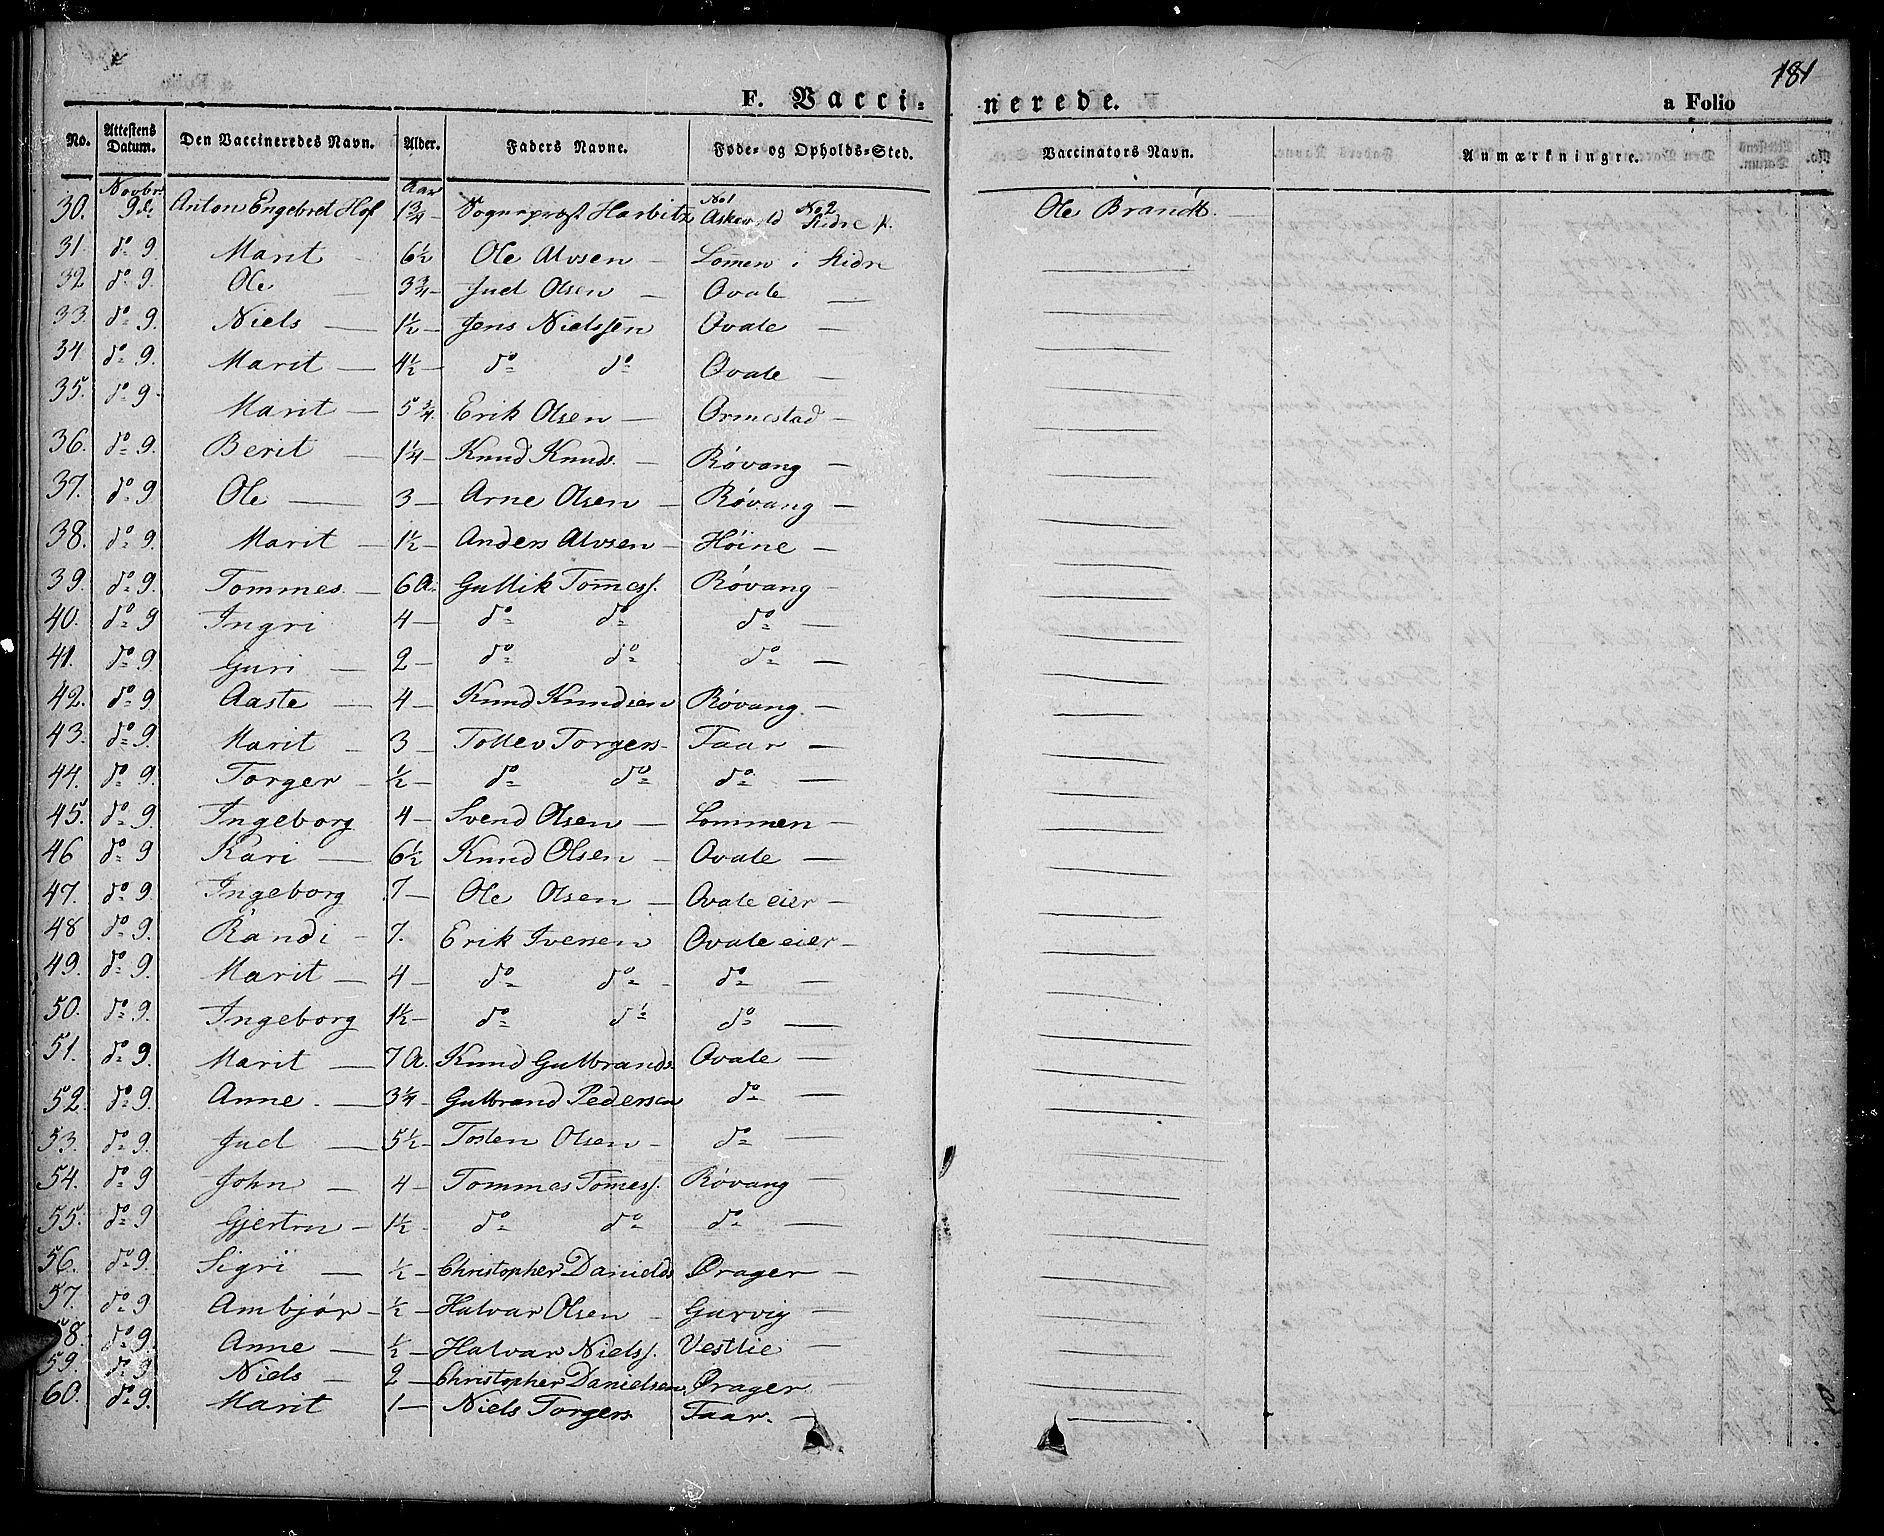 181
F. Vacci- nerede. a Folio
No. Attestens Datum. Den Vaccineredes Navn. Alder. Faders Navne. Føde- og Opholds-Sted. Vaccinators Navn. Anmærkningre.
Novbr Aar
30. 9de Anton Engebret Hof 1 3/4 - Sognepræst Harbitz No 1 Askevold No 2 Slidre p. Ole Brandt.
31. do 9. Marit 6 1/2 Ole Alvsen - Lomen i Slidre
32 do 9. Ole 3 3/4 - Juel Olsen - Qvale -
33. do 9. Niels - 1 1/2 - Jens Nielssen Qvale -
34 do 9. Marit - 4 1/2 - do do Qvale -
35. do 9. Marit - 5 3/4 Erik Olsen - Ormestad -
36. do 9. Berit 1 1/4 - Knud Knuds. - Røvang -
37. do 9 Ole - 3 - Arne Olsen - Røvang -
38. do 9. Marit - 1 1/2 - Anders Alvsen - Høine -
39. do 9. Tommes - 6 A. Gullik Tomess. Røvang -
40. do 9 Ingri 4 - do do do -
41. do 9. Guri - 2 - do do do -
42. do 9 Aaste - 4 - Knud Knudsen Røvang. -
43. do 9. Marit - 3 - Tollev Torgers - Faar -
44. do 9. Torger - 1/2 - do do do -
45. do 9. Ingeborg 4 - Svend Olsen - Lommen -
46 do 9 Kari - 6 1/2 Knud Olsen - Qvale -
47. do 9 Ingeborg 7 - Ole Olsen - Qvale eier -
48 do 9. Randi - 7. Erik Iversen Qvale eier -
49. do 9. Marit - 4 - do do - do -
50. do 9. Ingeborg 1 1/2 - do do do -
51. do 9 Marit - 7 A. Knud Gulbrands. Qvale -
52. do 9. Anne. - 3 1/4 Gulbrand Pedersen do -
53. do 9. Juel - 5 1/2 - Tosten Olsen - do -
54. do 9 John - 4 - Tommes Tomess. Røvang -
55. do 9 Gjertru - 1 1/2 - do do do -
56. do 9. Sigri - 1/2 - Christopher Daniels Qrager -
57. do 9 Ambjør - 1/2 - Halvar Olsen - Garvig -
58. do 9. Anne - 1/2 - Halvar Nielss. Vestlie -
59. do 9 Niels - 2 - Christopher Danielsen Qrager -
60. do 9. Marit 1 - Niels Torgers Faar. -